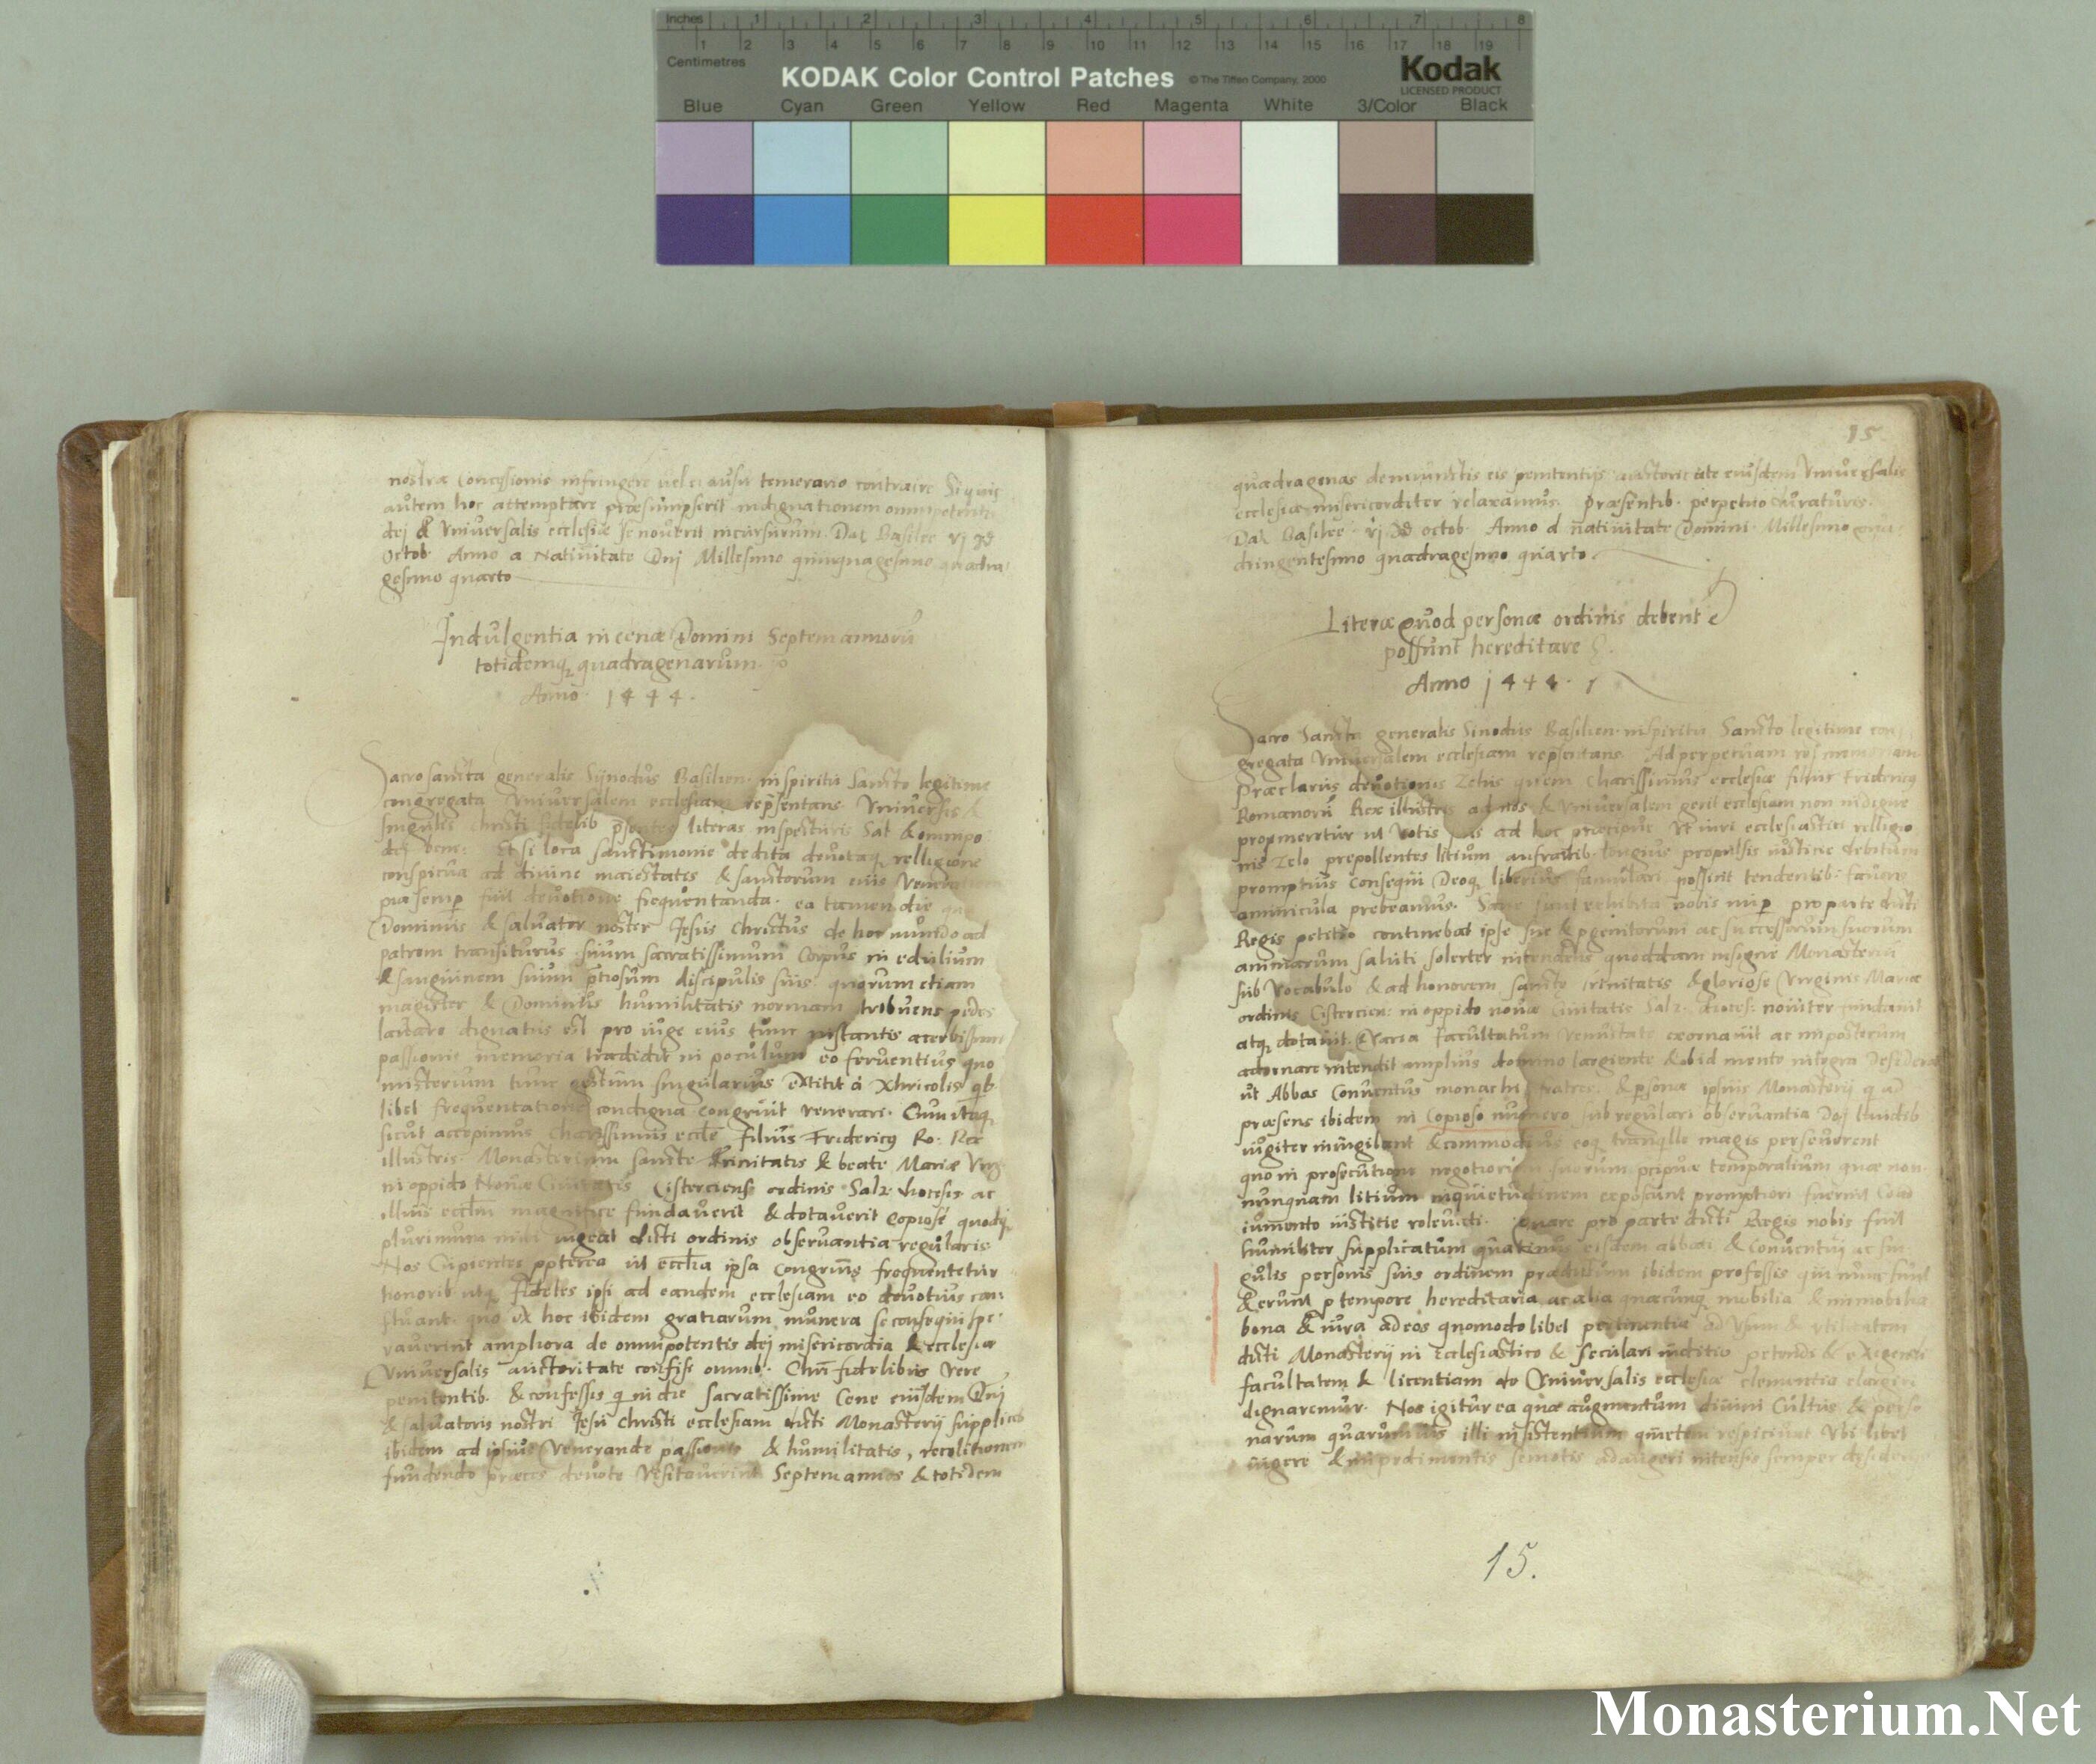 Inches 1 2 3 4 5 6 7 8
1 2 3 4 5 6 7 8 9 10 11 12 13 14 15 16 17 18 19
Centimetres
KODAK Color Control Patches © The Tiffen Company, 2000 Kodak
LICENSED PRODUCT
Blue Cyan Green Yellow Red Magenta White 3/Color Black
nostræ concessionis infringere vel ei ausu temerario contraire Si quis
autem hoc attemptare præsumpserit indignationem omnipotentis
dej & Vniuersalis ecclesiæ se nouerit incursurum. Dat Basilee vj Id
Octob. Anno a Natiuitate Dnj Millesimo quinquagesimo quadra
gesimo quarto
Indulgentia in cenæ Domini Septem annorū
totidemq quadragenarum.
Anno 1444.
Sacrosancta generalis Synodus Basilien. in spiritu Sancto legitime
congregata Vniuersalem ecclesiam rep̄sentans Vniuersis &
singulis christi fidelib p̄sentes literas inspecturis Sal & omnipo
dej bene: Et si loca sanctimonie dedita deuotaq relligione
conspicua ad diuine maiestatis & sanctorum eius
semp fuit deuotione frequentanda. ea tamen die
Dominus & saluator noster Jesus Christus de hoc mundo ad
patrem transiturus suum sacratissimum Corpus in edulium
& sanguinem suum p̄tiosum discipulis suis quorum etiam
magister & Dominus humilitatis normam tribuens pedes
lauare dignatus est pro iuge eius tunc instantis acerbissime
passionis memoria tradidit in poculum eo feruentius quo
misterium tunc gestum singularius extitit à Xhricolis qb
libet frequentatione condigna congruit venerari. Cum itaq
sicut accepimus Charissimus eccle filius Fridericus Ro: Rex
illustris Monasterium sancte Trinitatis & beate Mariæ Virg
in oppido Nouæ Ciuitatis Cisterciens ordinis Salz. diocesis ac
illius eccliam magnifice fundauerit & dotauerit copiose quodq
plurimum inibi uigeat dicti ordinis obseruantia regularis
Nos Cupientes ppterea ut ecclia ipsa congruis frequentetur
honorib utq fideles ipsi ad eandem ecclesiam eo deuotius con
fluant quo ex hoc ibidem gratiarum munera se consequi spe
rauerint ampliora de omnipotentis dej misericordia & ecclesiæ
Vniuersalis auctoritate confisi omnib. Chri fidelibus vere
penitentib. & confessis q in die sacratissime Cene eiusdem Dnj
& saluatoris nostri Jesu Christi ecclesiam dicti Monasterij supplices
ibidem ad ipsius Venerande passionis & humilitatis, recolitionem
fundendo præces deuote visitauerint Septem annos & totidem
15
quadragenas de iniunctis eis penitentijs auctoritate eiusdem Vniuersalis
ecclesiæ misericorditer relaxamus. Præsentib. perpetuo duraturis.
Dat Basilee vj Id octob. Anno a natiuitate Domini Millesimo qua
dringentesimo quadragesimo quarto
Literæ quod personæ ordinis debent &
possunt hereditare
Anno 1444.
Sacro Sancta generalis Sinodus Basilien. in spiritu Sancto legitime con
gregata Vniuersalem ecclesiam rep̄sentans Ad perpetuam rej memoriam
Præclarus deuotionis Zelus quem Charissimus ecclesiæ filius Fridericus
Romanorū Rex illustris ad nos & Vniuersalem gerit ecclesiam non indigne
promeretur ut votis ad hoc præcipue Vt viri ecclesiastici relligio
nis Zelo prepollentes litium anfractib. longius propulsis iusticie debitum
promptius consequi Deoq liberius famulari possint tendentib. fauoris
aminicula prebeamus. Sane exhibita nobis nup pro parte dicti
Regis petitio continebat ipse sue & pgenitorum ac successorum suorum
animarum saluti solerter intendens quoddam insigne Monasteriū
sub Vocabulo & ad honorem sancte trinitatis & gloriose Virginis Mariæ
ordinis Cistercien: in oppido nouæ Ciuitatis Salz. dioces. nouiter fundauit
atq dotauit. Varia facultatum venustate exornauit ac imposterum
adornare intendit amplius domino largiente & ob id mente integra desiderat
ut Abbas Conuentus monachi fratres & psonæ ipsius Monasterij q ad
præsens ibidem in copioso numero sub regulari obseruantia Dej laudib
iugiter inuigilant & commodius eoq tranqlle magis perseuerent
quo in prosecutione negotiorum suorum pcipue temporalium quæ non
nunquam litium inquietudinem exposcunt promptiori fuerint Coad
iumento iustitie releuati. Quare pro parte dicti Regis nobis fuit
humiliter supplicatum quatinus eisdem abbati & Conuentuj ac sin
gulis personis suis ordinem prædictum ibidem professis qui nunc sunt
& erunt p tempore hereditaria ac alia quæcunq mobilia & immobilia
bona & iura ad eos quomodo libet pertinentia ad Vsum & vtilitatem
dicti Monasterij in Ecclesiastico & seculari iuditio petendi & exigendi
facultatem & licentiam de Vniuersalis ecclesiæ clementia elargiri
dignaremur. Nos igitur ea quæ augmentum diuini Cultus & perso
narum quarumuis illi insistentium quietem respiciunt Vbi libet
uigere & impedimentis semotis adaugeri intensis semper desiderijs
15.
Monasterium.Net